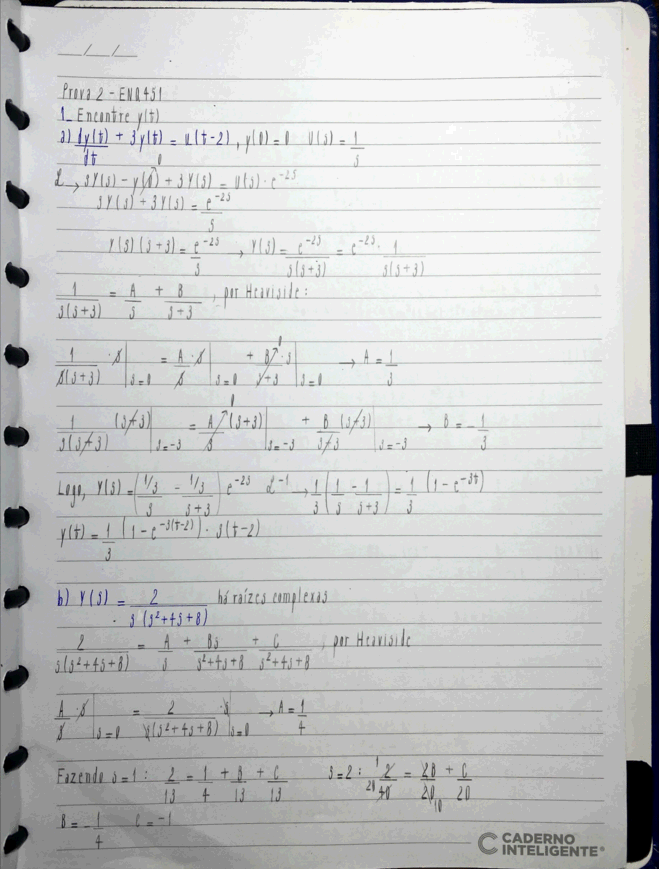 __/__/__
Prova 2 - ENQ451
1_ Encontre y(t)
a) dy(t)/dt + 3y(t) = u(t-2), y(0) = 0 U(s) = 1/s
ℒ → sY(s) - y(0)→0 + 3Y(s) = U(s)·e^-2s
sY(s) + 3Y(s) = e^-2s/s
Y(s)(s+3) = e^-2s/s → Y(s) = e^-2s/s(s+3) = e^-2s · 1/s(s+3)
1/s(s+3) = A/s + B/s+3, por Heaviside:
1/s(s+3) · s |s=0 = A/s · s |s=0 + B/s+3 · s→0 |s=0 → A = 1/3
1/s(s+3) (s+3) |s=-3 = A/s (s+3)→0 |s=-3 + B/s+3 (s+3) |s=-3 → B = -1/3
Logo, Y(s) = (1/3/s - 1/3/s+3) e^-2s ℒ^-1 → 1/3 (1/s - 1/s+3) = 1/3 (1-e^-3t)
y(t) = 1/3 (1-e^-3(t-2)) · s(t-2)
b) Y(s) = 2/s(s²+4s+8) há raízes complexas
2/s(s²+4s+8) = A/s + Bs/s²+4s+8 + C/s²+4s+8, por Heaviside
A/s · s |s=0 = 2/s(s²+4s+8) · s |s=0 → A = 1/4
Fazendo s=1: 2/13 = 1/4 + B/13 + C/13 s=2: 1 2/40 20 = 2B/20 10 + C/20
B = -1/4 C = -1
CADERNO
INTELIGENTE®